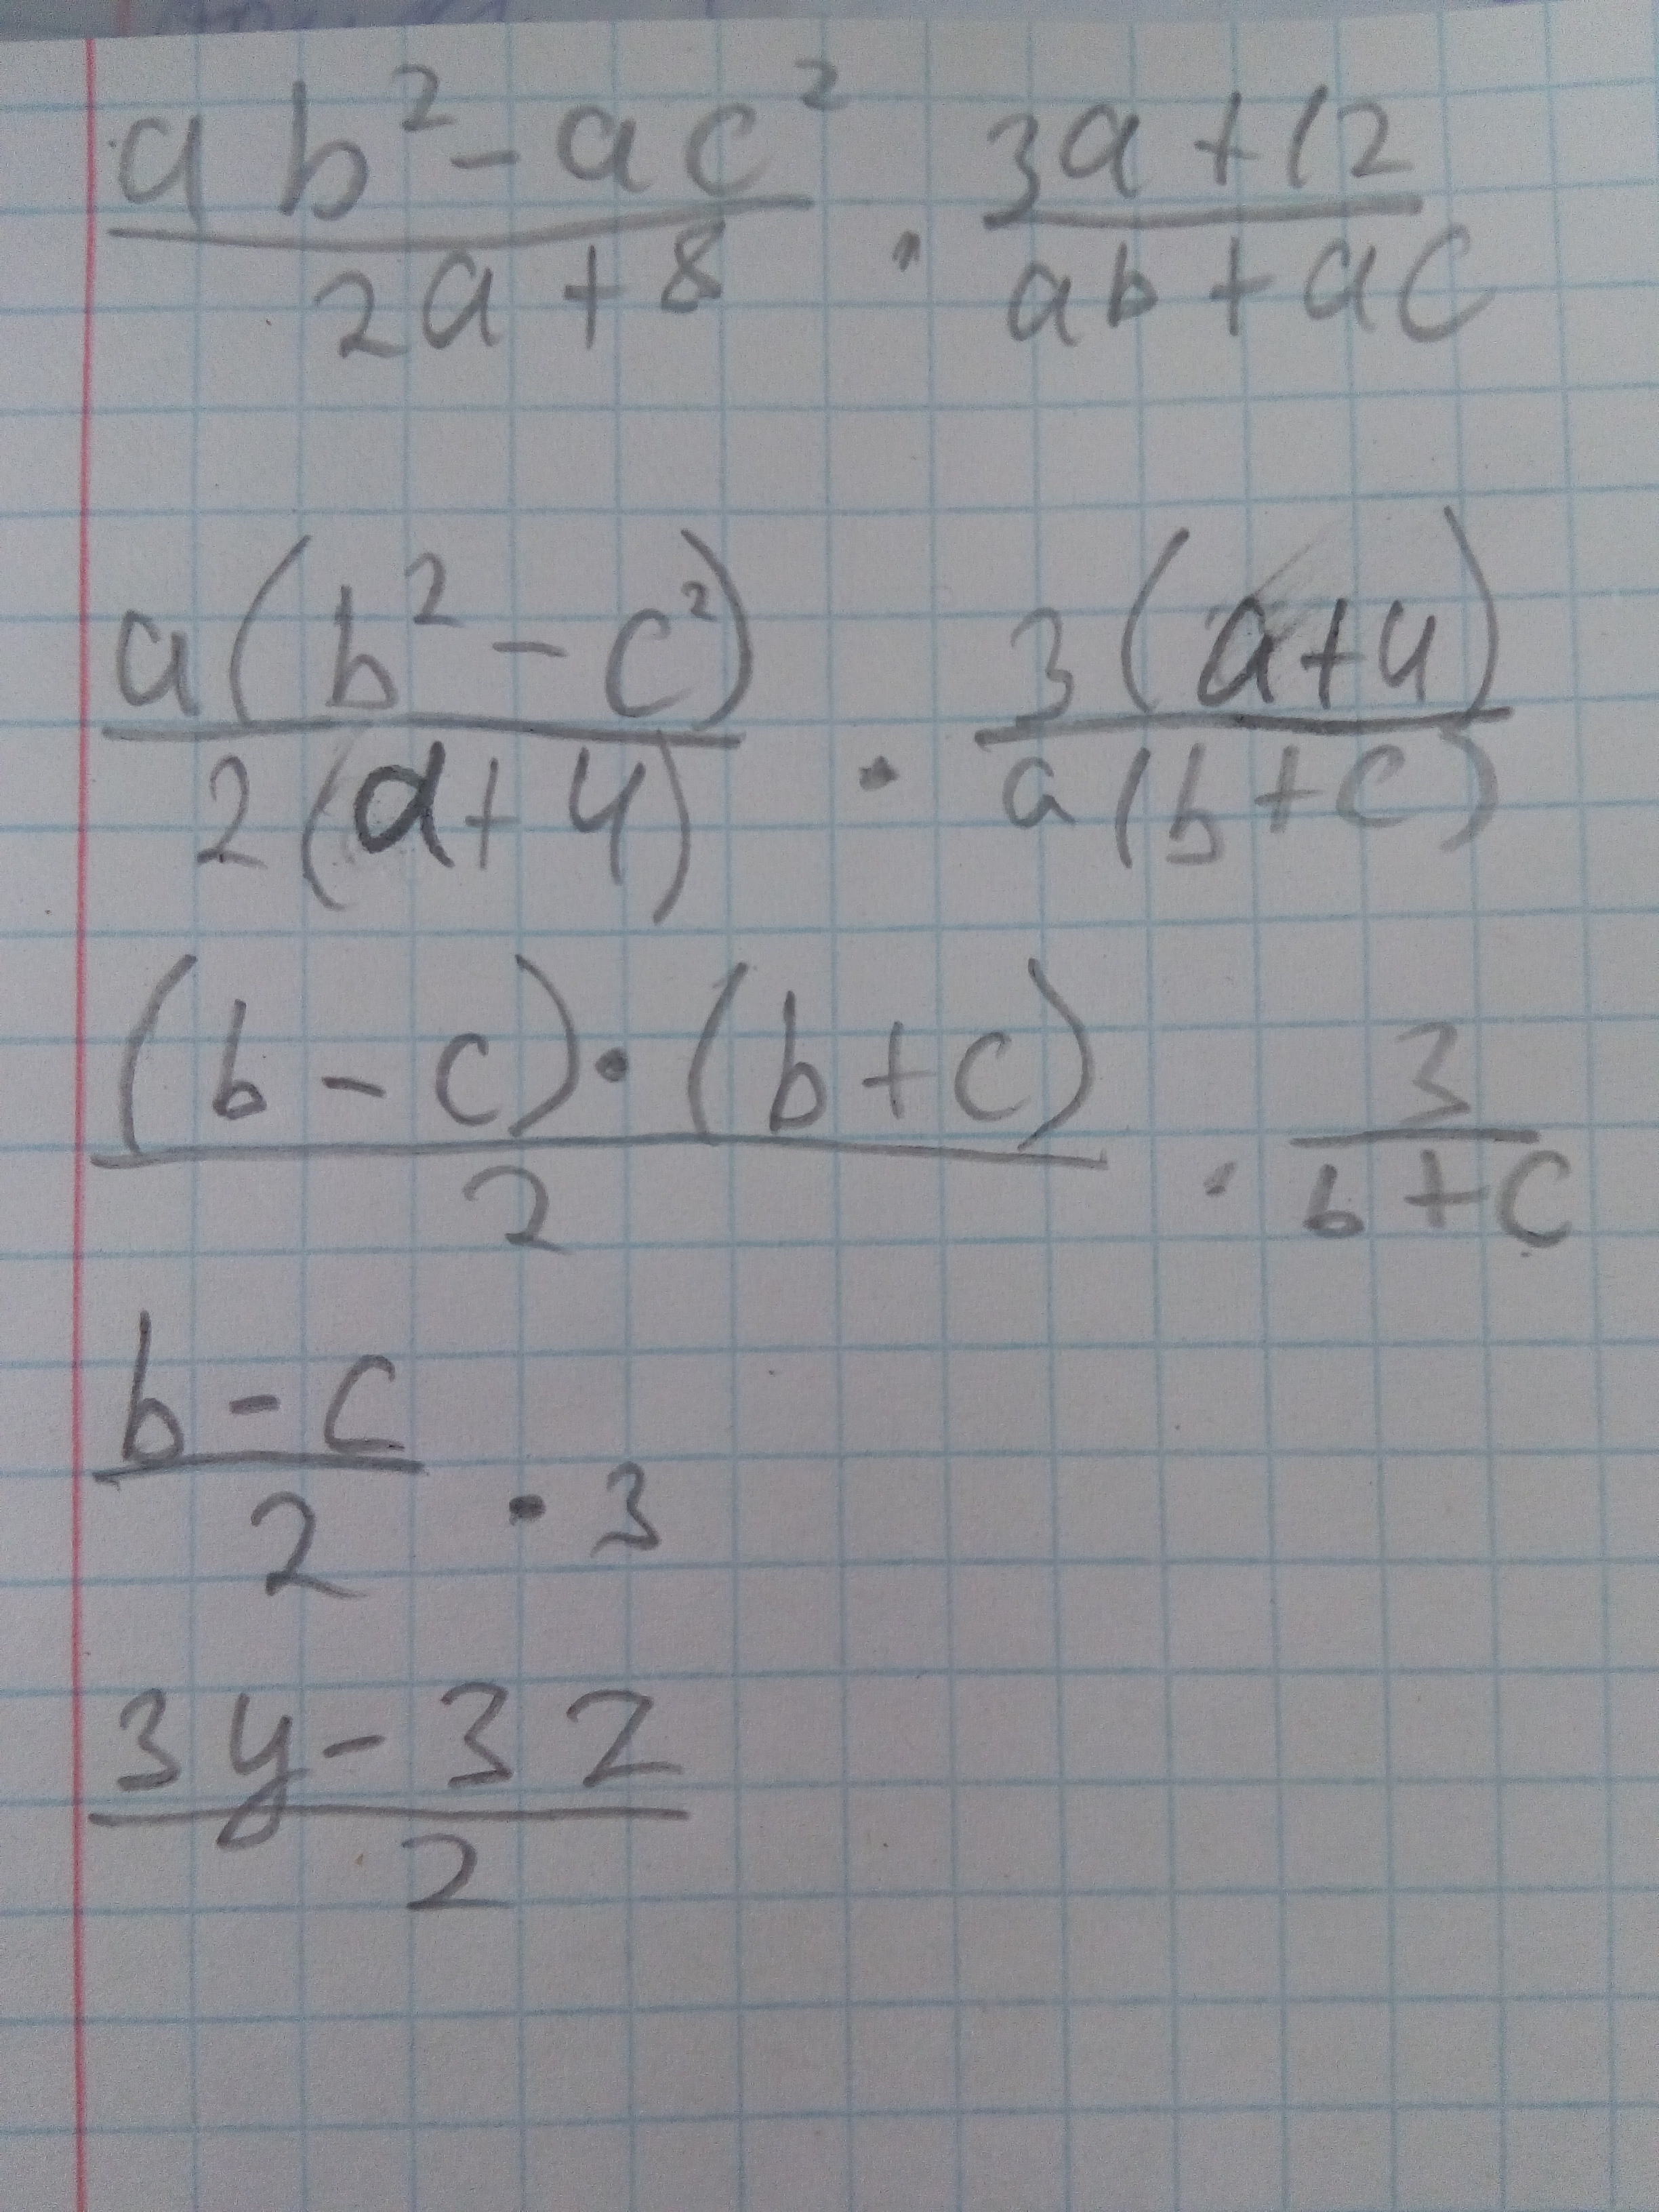 ab² - ac² / 2a + 8 · 3a + 12 / ab + ac
a(b² - c²) / 2(a + 4) · 3(a + 4) / a(b + c)
(b - c) · (b + c) / 2 · 3 / b + c
b - c / 2 · 3
3y - 3z / 2